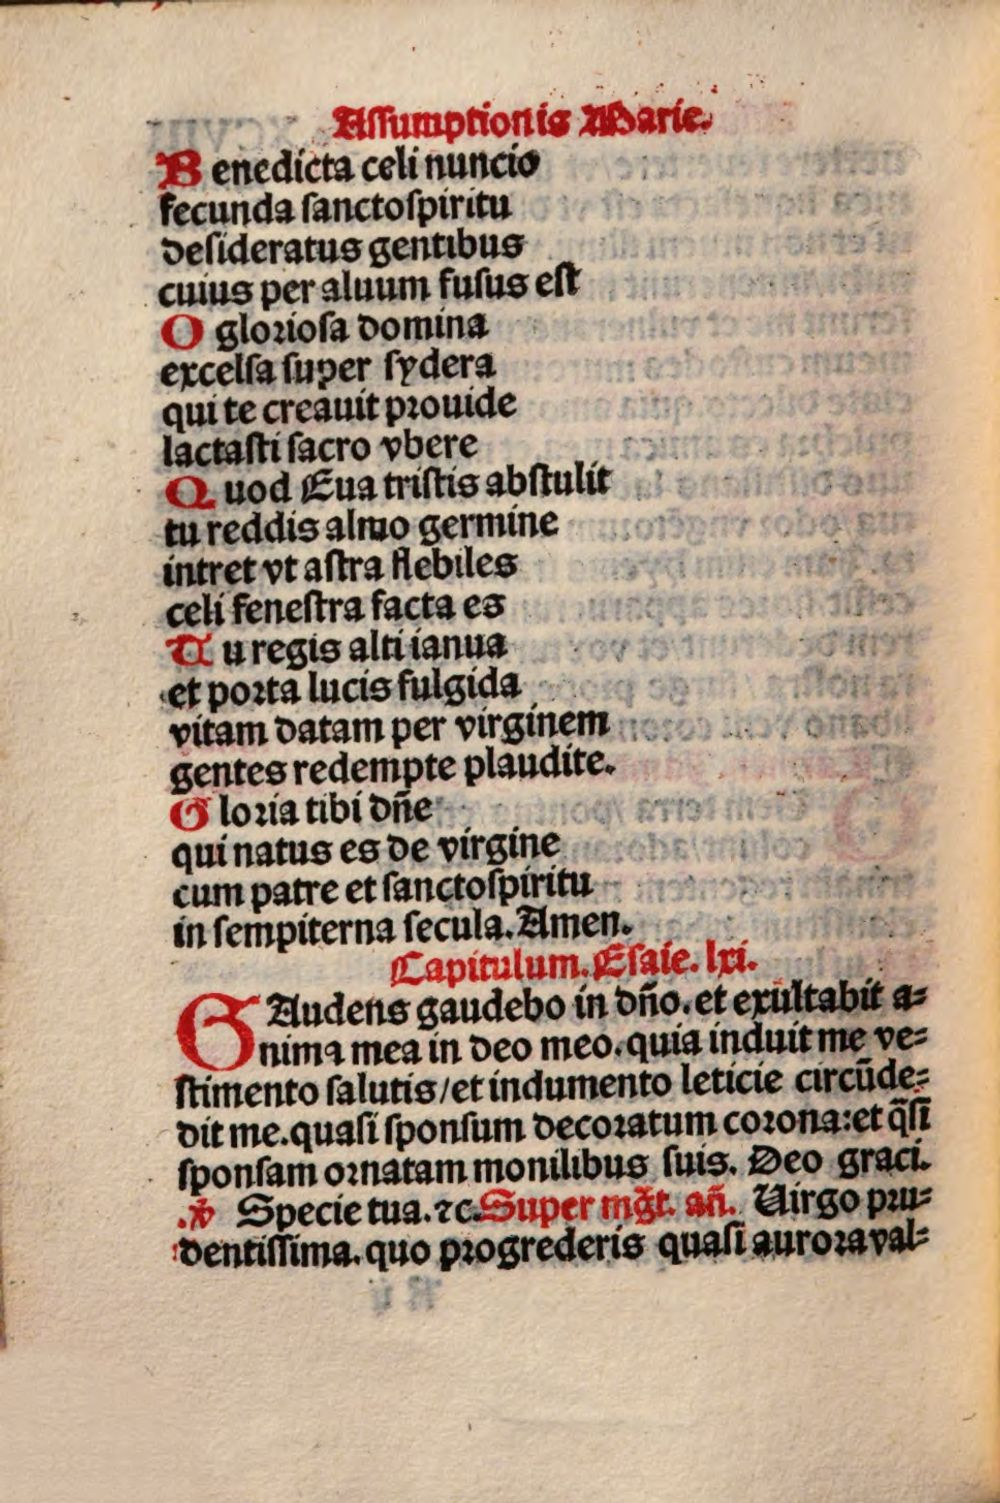 Aſſumptionis Marie.
Benedicta celi nuncio
fecunda ſanctoſpiritu
deſideratus gentibus
cuius per aluum fuſus eſt
O glorioſa domina
excelſa ſuper ſydera
qui te creauit prouide
lactaſti ſacro vbere
Quod Eua triſtis abſtulit
tu reddis almo germine
intret vt aſtra flebiles
celi feneſtra facta es
Tu regis alti ianua
et porta lucis fulgida
vitam datam per virginem
gentes redempte plaudite.
Gloria tibi dñe
qui natus es de virgine
cum patre et ſanctoſpiritu
in ſempiterna ſecula. Amen.
Capitulum. Eſaie. lxi.
GAudens gaudebo in dño. et exultabit a⸗
nima mea in deo meo. quia induit me ve⸗
ſtimento ſalutis/et indumento leticie circūde⸗
dit me. quaſi ſponſum decoratum corona: et q̄ſi
ſponſam ornatam monilibus ſuis. Deo graci.
℣ Specie tua. ⁊c. Super mg̃t. añ. Virgo pru⸗
dentiſſima. quo progrederis quaſi aurora val⸗